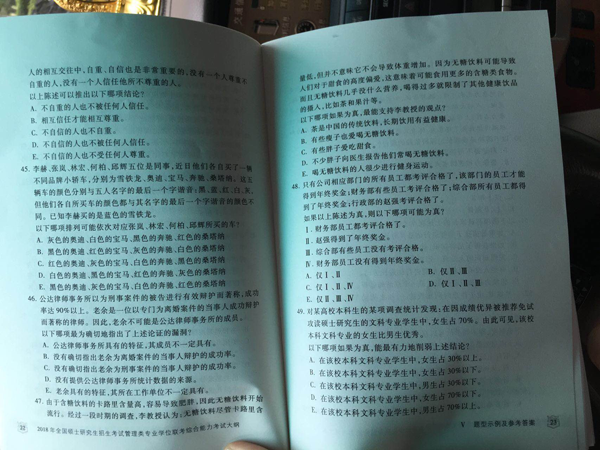 人的相互交往中,自重、自信也是非常重要的,没有一个人尊重不
自重的人,没有一个人信任他所不尊重的人。
以上陈述可以推出以下哪项结论?
A. 不自重的人也不被任何人信任。
B. 相互信任才能相互尊重。
C. 不自信的人也不自重。
D. 不自信的人也不被任何人信任。
E. 不自信的人也不受任何人尊重。
45. 李赫、张岚、林宏、何柏、邱辉五位是同事,近日他们各自买了一辆
不同品牌小轿车,分别为雪铁龙、奥迪、宝马、奔驰、桑塔纳。这五
辆车的颜色分别与五人名字的最后一个字谐音:黑、蓝、红、白、灰。
但他们各自所买车的颜色都与其名字的最后一个字谐音的颜色不
同。已知李赫买的是蓝色的雪铁龙。
以下哪项排列可能依次对应张岚、林宏、何柏、邱辉所买的车?
A. 灰色的奥迪、白色的宝马、黑色的奔驰、红色的桑塔纳
B. 黑色的奥迪、红色的宝马、灰色的奔驰、白色的桑塔纳
C. 红色的奥迪、灰色的宝马、白色的奔驰、黑色的桑塔纳
D. 白色的奥迪、黑色的宝马、红色的奔驰、灰色的桑塔纳
E. 黑色的奥迪、灰色的宝马、白色的奔驰、红色的桑塔纳
46. 公达律师事务所以为刑事案件的被告进行有效辩护而著称,成功
率达90%以上。老余是一位以专门为离婚案件的当事人成功辩护
而著称的律师。因此,老余不可能是公达律师事务所的成员。
以下哪项最为确切地指出了上述论证的漏洞?
A. 公达律师事务所具有的特征,其成员不一定具有。
B. 没有确切指出老余为离婚案件的当事人辩护的成功率。
C. 没有确切指出老余为刑事案件的当事人辩护的成功率。
D. 没有提供公达律师事务所统计数据的来源。
E. 老余具有的特征,其所在工作单位不一定具有。
47. 由于含糖饮料的卡路里含量高,容易导致肥胖,因此无糖饮料开始
流行。经过一段时期的调查,李教授认为:无糖饮料尽管卡路里含
22 2018年全国硕士研究生招生考试管理类专业学位联考综合能力考试大纲
量低,但并不意味它不会导致体重增加。因为无糖饮料可能导致
人们对于甜食的高度偏爱,这意味着可能食用更多的含糖类食物。
而且无糖饮料几乎没什么营养,喝得过多就限制了其他健康饮品
的摄入,比如茶和果汁等。
以下哪项如果为真,最能支持李教授的观点?
A. 茶是中国的传统饮料,长期饮用有益健康。
B. 有些瘦子也爱喝无糖饮料。
C. 有些胖子爱吃甜食。
D. 不少胖子向医生报告他们常喝无糖饮料。
E. 喝无糖饮料的人很少进行健身运动。
48. 只有公司相应部门的所有员工都考评合格了,该部门的员工才能
得到年终奖金;财务部有些员工考评合格了;综合部所有员工都得
到了年终奖金;行政部的赵强考评合格了。
如果以上陈述为真,则以下哪项可能为真?
Ⅰ. 财务部员工都考评合格了。
Ⅱ. 赵强得到了年终奖金。
Ⅲ. 综合部有些员工没有考评合格。
Ⅳ. 财务部员工没有得到年终奖金。
A. 仅Ⅰ、Ⅱ B. 仅Ⅱ、Ⅲ
C. 仅Ⅰ、Ⅱ、Ⅳ D. 仅Ⅰ、Ⅱ、Ⅲ
E. 仅Ⅱ、Ⅲ、Ⅳ
49. 对某高校本科生的某项调查统计发现:在因成绩优异被推荐免试
攻读硕士研究生的文科专业学生中,女生占70%。由此可见,该校
本科文科专业的女生比男生优秀。
以下哪项如果为真,最能有力地削弱上述结论?
A. 在该校本科文科专业学生中,女生占30%以上。
B. 在该校本科文科专业学生中,女生占30%以下。
C. 在该校本科文科专业学生中,男生占30%以下。
D. 在该校本科文科专业学生中,女生占70%以下。
E. 在该校本科文科专业学生中,男生占70%以上。
Ⅴ 题型示例及参考答案 23